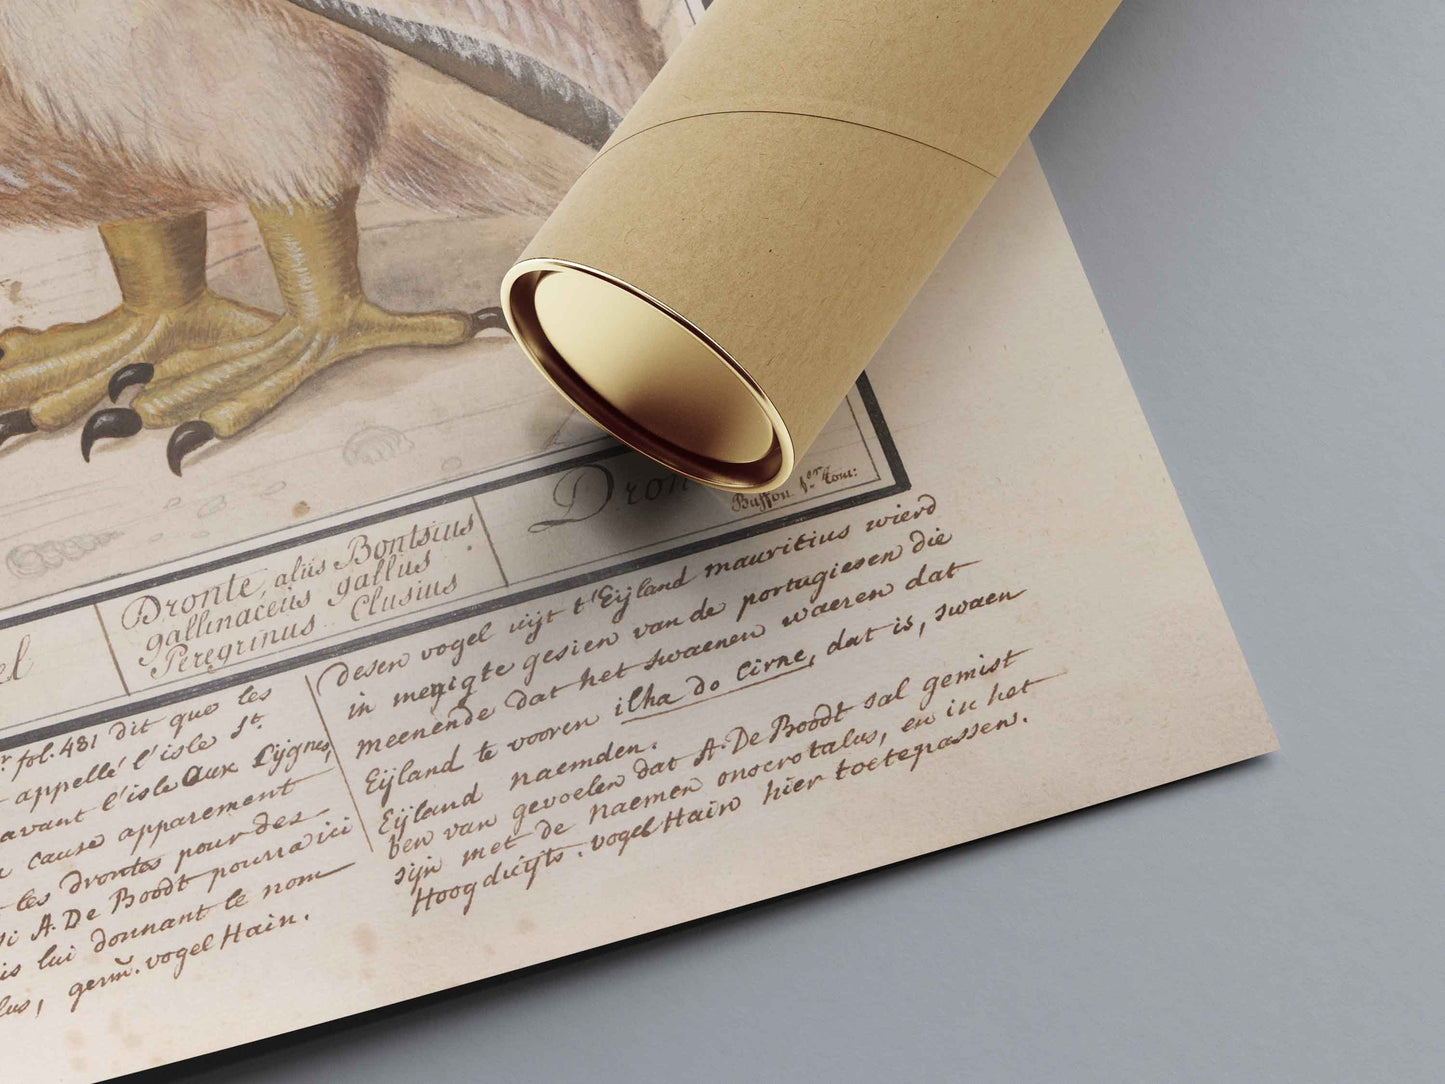 el
Dronte, aliis Bontsius
gallinaceus gallus
Peregrinus Clusius
Dron
Buffon 1.er Tom:
r fol. 481 dit que les
appellé l'isle St.
avant l'isle Aux Cÿgnes,
cause apparement
les Drontes pour des
A. De Boodt pourra ici
is lui donnant le nom
lus, germ̃. vogel Hain.
Desen vogel uijt t'Eijland mauritius wierd
in menigte gesien van de portugiesen die
meenende dat het swaenen waeren dat
Eijland te vooren ilha do Cirne, dat is, swaen
Eijland naemden.
ben van gevoelen dat A. De Boodt sal gemist
sijn met de naemen onocrotalus, en in het
Hoogduijts. vogel Hain hier toetepassen.